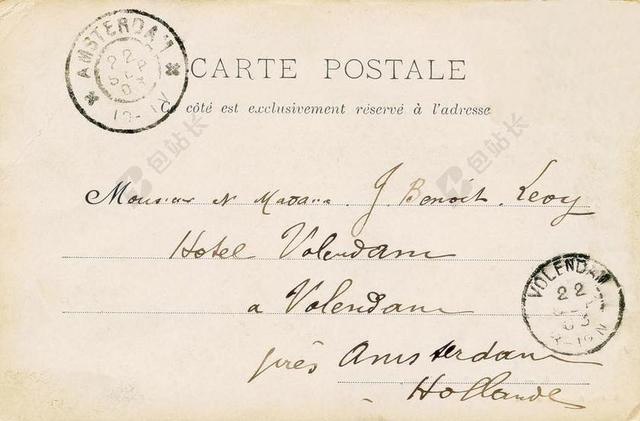 AMSTERDAM
22
CARTE POSTALE
Ce côté est exclusivement réservé à l'adresse
Monsieur J. Benoit-Levy
Hotel Volendam
a Volendam
près Amsterdam
Hollande
VOLENDAM
22
包站长
包站长
包站长